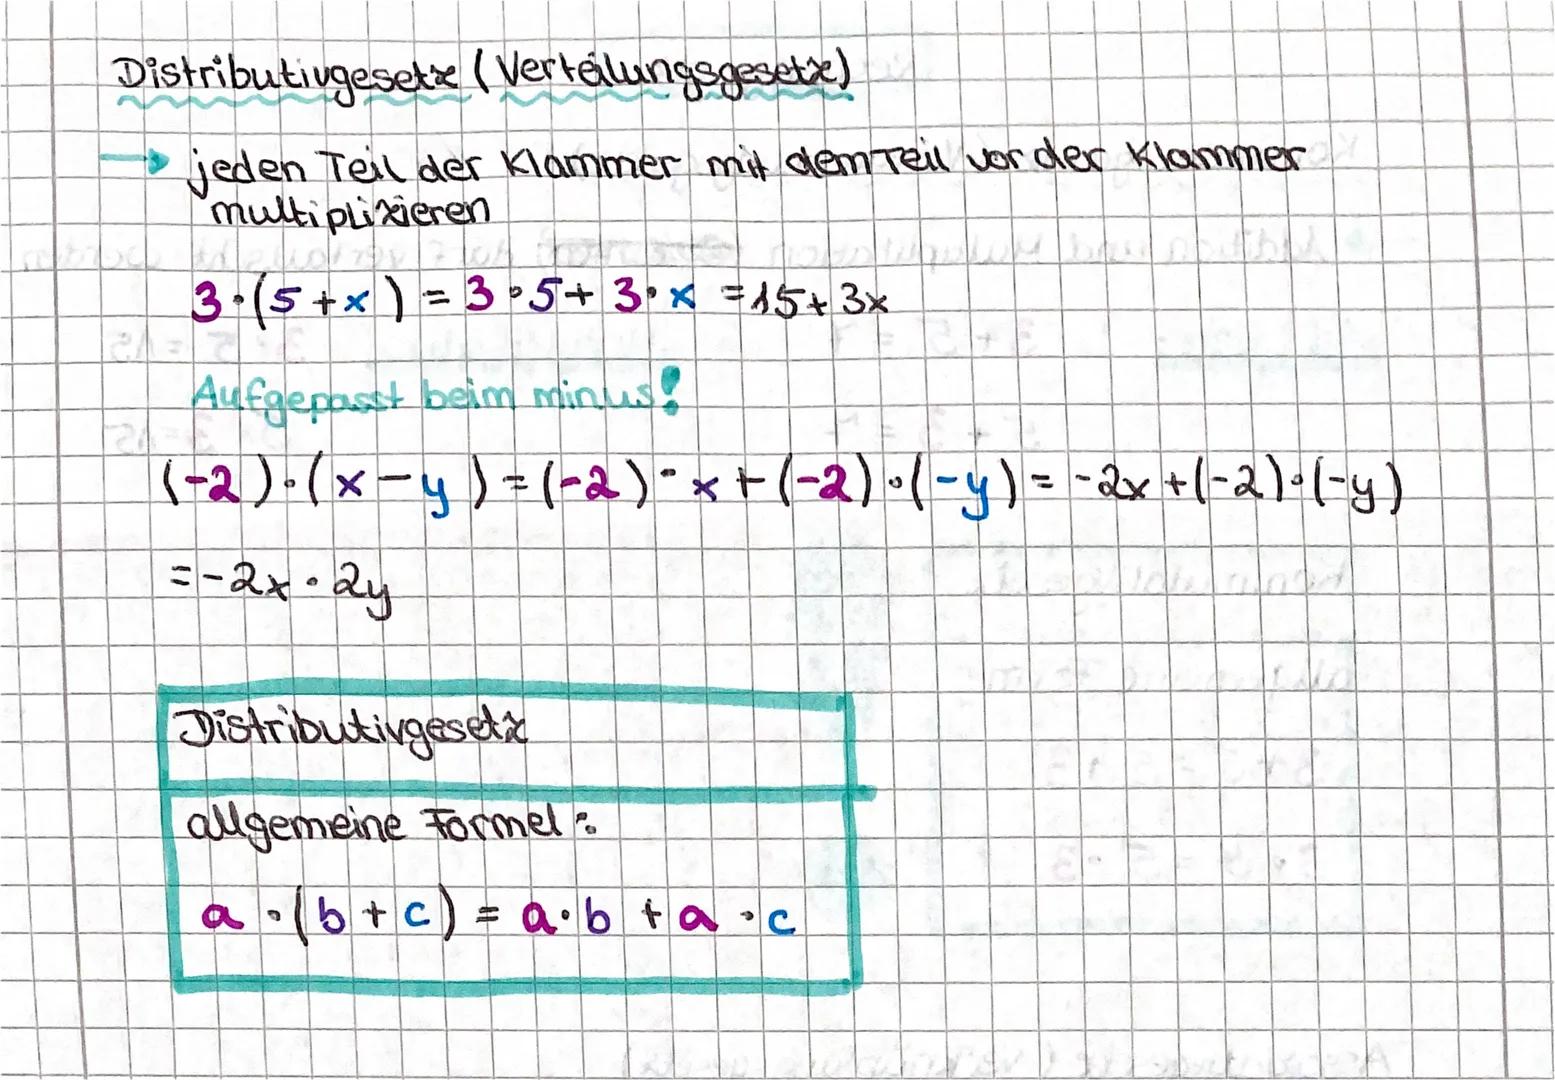 Distributivgesetz (Verteilungsgesetz)
→ jeden Teil der Klammer mit dem Teil vor der Klammer
multiplizieren
3·(5+x) = 3·5+3·x = 15+3x
Aufgepasst beim minus!
(-2)·(x-y) = (-2)·x+(-2)·(-y) = -2x+(-2)·(-y)
=-2x·2y
Distributivgesetz
allgemeine Formel:
a·(b+c) = a·b+a·c